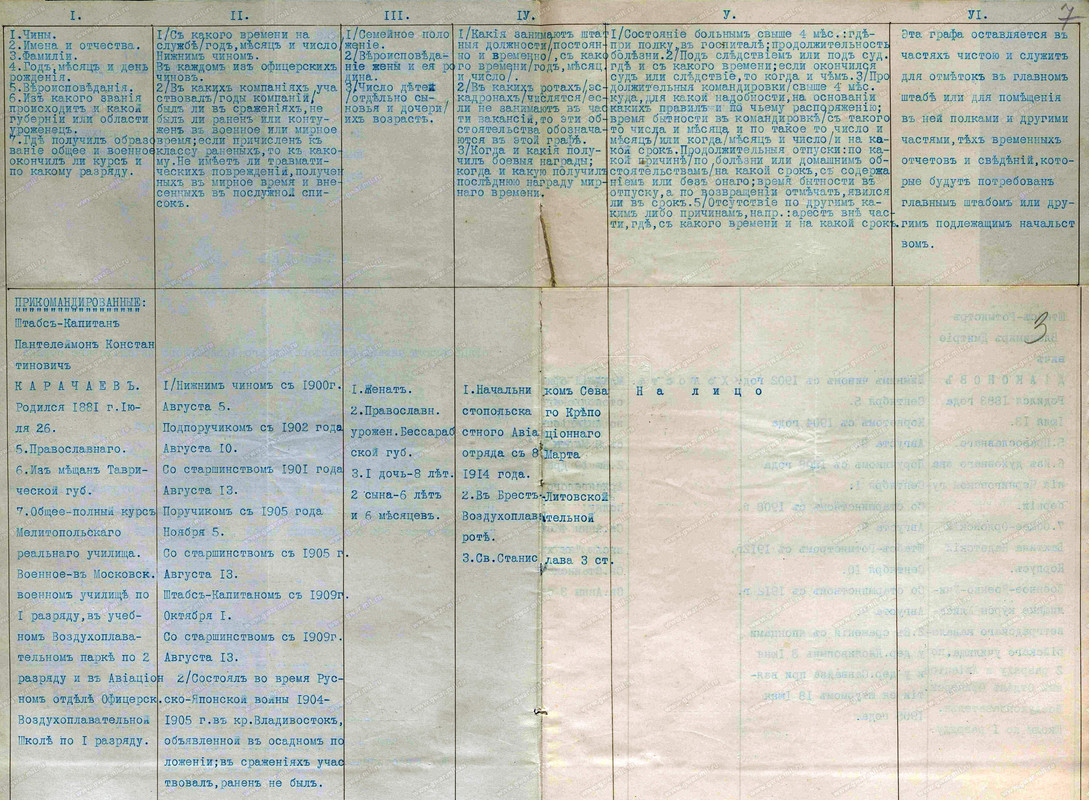 I.
1.Чины.
2.Имена и отчества.
3.Фамиліи.
4.Годъ,мѣсяцъ и день
рожденія.
5.Вѣроисповѣданія.
6.Изъ какого званія
происходитъ и какой
губерніи или области
уроженецъ.
7.Гдѣ получилъ образо
ваніе общее и военное
окончилъ ли курсъ и
по какому разряду.
II.
I/Съ какого времени на
службѣ/годъ,мѣсяцъ и число/
Нижнимъ чиномъ.
Въ каждомъ изъ офицерскихъ
чиновъ.
2/Въ какихъ компаніяхъ уча
ствовалъ/годы компаній/,
былъ ли въ сраженіяхъ,не
былъ ли раненъ или конту-
женъ въ военное или мирное
время;если причисленъ къ
классу раненыхъ,то къ како-
му.Не имѣетъ ли травмати-
ческихъ поврежденій,получен
ныхъ въ мирное время и вне-
сенныхъ въ послужной спи-
сокъ.
III.
I/Семейное поло
женіе.
2/Вѣроисповѣда-
ніе жены и ея ро
дина.
3/Число дѣтей
/отдѣльно сы-
новья и дочери/
ихъ возрастъ.
IУ.
I/Какія занимаютъ штат
ныя должности/постоян-
но и временно/,съ како
го времени/годъ,мѣсяц.
и число/.
2/Въ какихъ ротахъ/эс-
кадронахъ/числятся/ес-
ли не занимаютъ въ час
ти вакансій,то эти об-
стоятельства обознача-
ются въ этой графѣ.
3/Когда и какія полу-
чилъ боевыя награды;
когда и какую получилъ
послѣднюю награду мир-
наго времени.
У.
I/Состояніе больнымъ свыше 4 мѣс.:гдѣ-
при полку,въ госпиталѣ;продолжительность
болѣзни.2/Подъ слѣдствіемъ или подъ суд.
гдѣ и съ какого времени;если окончился
судъ или слѣдствіе,то когда и чѣмъ.3/Про
должительныя командировки/свыше 4 мѣс.
куда,для какой надобности,на основаніи
какихъ правилъ и по чьему распоряженію;
время бытности въ командировкѣ/съ такого
то числа и мѣсяца и по такое то число и
мѣсяцъ/или когда/мѣсяцъ и число/и на ка-
кой срокъ.Продолжительныя отпуски:по ка-
кой причинѣ/по болѣзни или домашнимъ об-
стоятельствамъ/на какой срокъ,съ содержа
ніемъ или безъ онаго;время бытности въ
отпуску,а по возвращеніи отмѣчать,явился
ли въ срокъ.5/Отсутствіе по другимъ ка-
кимъ либо причинамъ,напр.:арестъ внѣ час-
ти,гдѣ,съ какого времени и на какой срокъ.
УI.
7
Эта графа оставляется въ
частяхъ чистою и служитъ
для отмѣтокъ въ главномъ
штабѣ или для помѣщенія
въ ней полками и другими
частями,тѣхъ временныхъ
отчетовъ и свѣдѣній,кото-
рые будутъ потребованъ
главнымъ штабомъ или дру-
гимъ подлежащимъ начальст
вомъ.
ПРИКОМАНДИРОВАННЫЕ:
Штабсъ-Капитанъ
Пантелеймонъ Констан
тиновичъ
К А Р А Ч А Е В Ъ.
Родился 1881 г.Iю-
ля 26.
5.Православнаго.
6.Изъ мѣщанъ Таври-
ческой губ.
7.Общее-полный курсъ
Мелитопольскаго
реальнаго училища.
Военное-въ Московск.
военномъ училищѣ по
I разряду,въ учеб-
номъ Воздухоплава-
тельномъ паркѣ по 2
разряду и въ Авіаціон
номъ отдѣлѣ Офицерск.
Воздухоплавательной
Школѣ по I разряду.
I/Нижнимъ чиномъ съ 1900г.
Августа 5.
Подпоручикомъ съ 1902 года
Августа 10.
Со старшинствомъ 1901 года
Августа 13.
Поручикомъ съ 1905 года
Ноября 5.
Со старшинствомъ съ 1905 г.
Августа 13.
Штабсъ-Капитаномъ съ 1909г.
Октября I.
Со старшинствомъ съ 1909г.
Августа 13.
2/Состоялъ во время Рус-
ско-Японской войны 1904-
1905 г.въ кр.Владивостокъ,
объявленной въ осадномъ по
ложеніи;въ сраженіяхъ учас
твовалъ,раненъ не былъ.
I.Женатъ.
2.Православн.
урожен.Бессараб
ской губ.
3.I дочь-8 лѣт.
2 сына-6 лѣтъ
и 6 мѣсяцевъ.
I.Начальникомъ Сева
стопольскаго Крѣпо
стного Авіаціоннаго
отряда съ 8 Марта
1914 года.
2.Въ Брестъ-Литовской
Воздухоплавательной
ротѣ.
3.Св.Станислава 3 ст.
Н а л и ц о
3